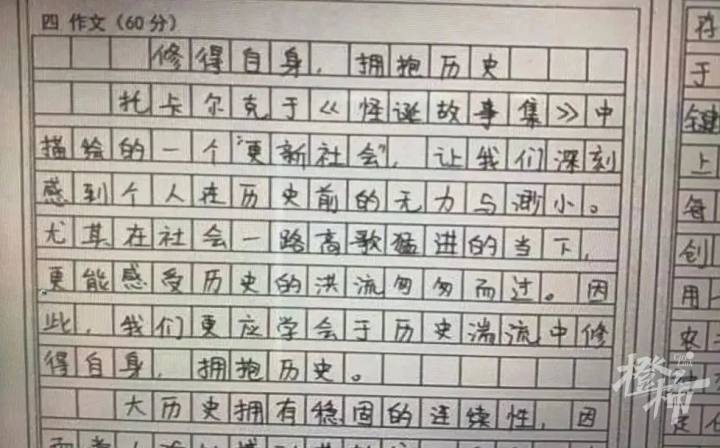 四 作文(60分)
修得自身,拥抱历史
托卡尔克于《怪诞故事集》中
描绘的一个"更新社会",让我们深刻
感到个人在历史前的无力与渺小。
尤其在社会一路高歌猛进的当下,
更能感受历史的洪流匆匆而过。因
此,我们更应学会于历史湍流中修
得自身,拥抱历史。
大历史拥有稳固的连续性,因
存
于
键
上
每
创
用
农
橙柿